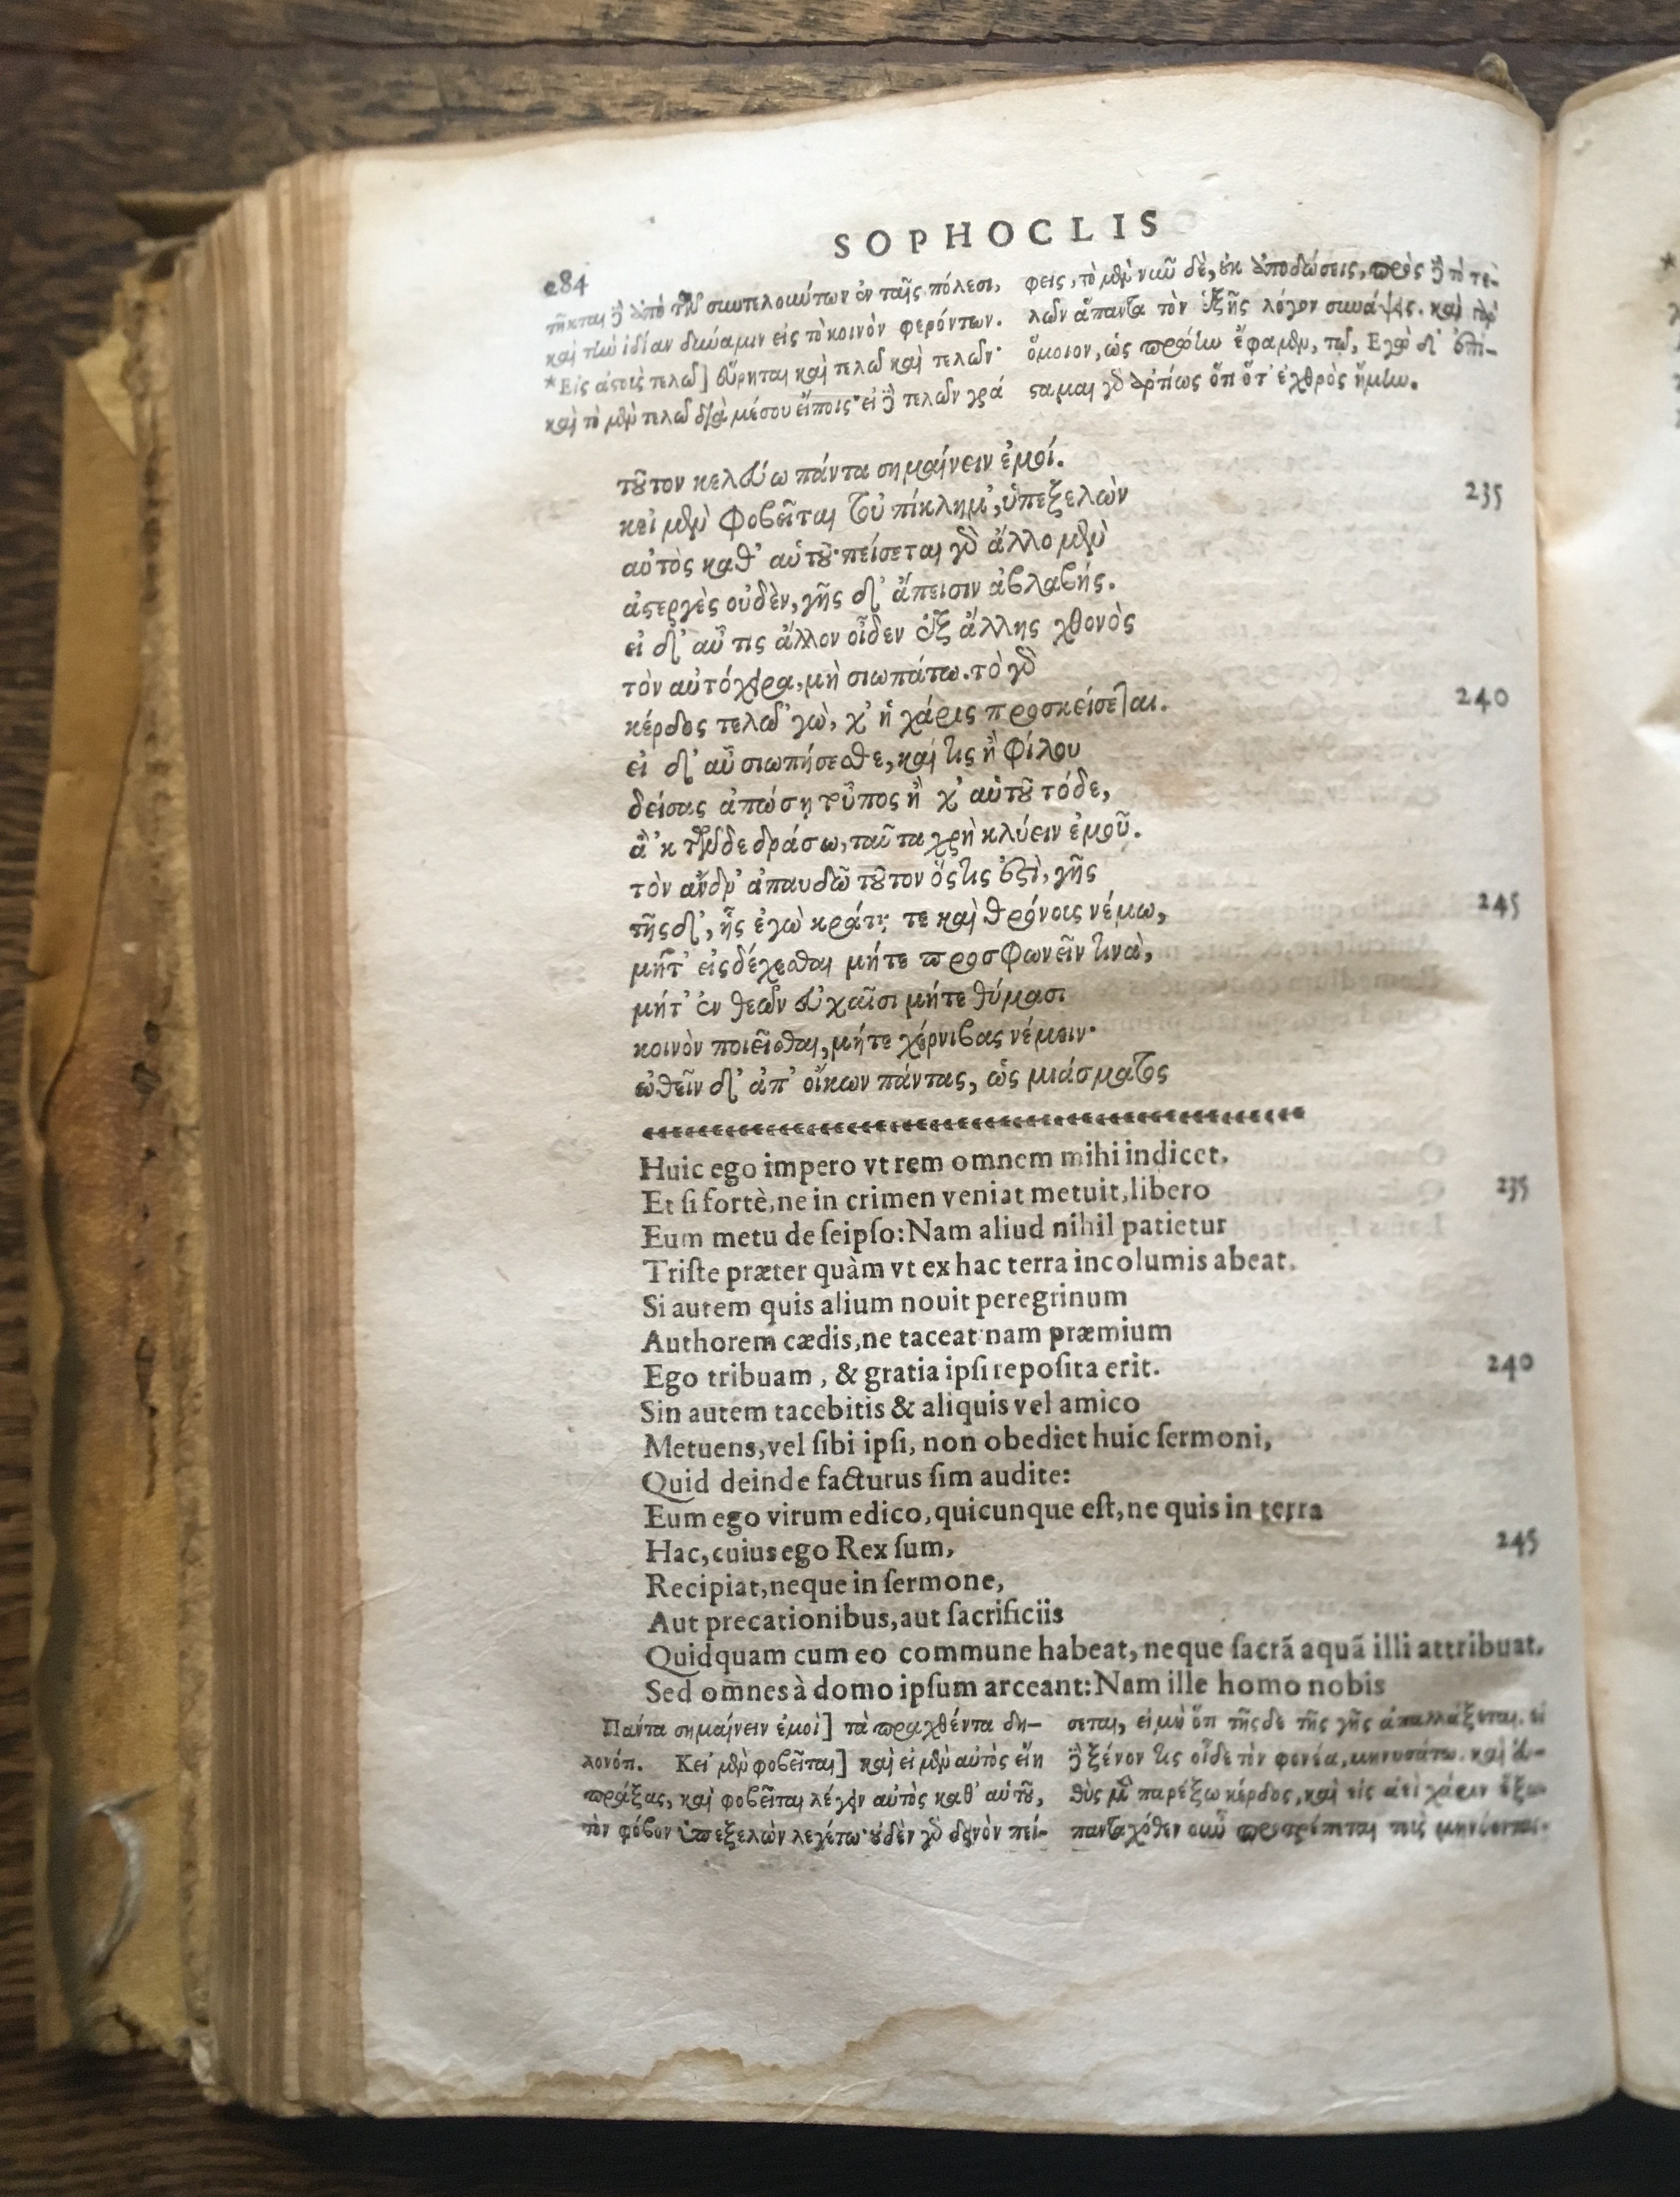 SOPHOCLIS
284
τῆκται ἢ ἀπὸ τῶν συντελούντων ἐν ταῖς πόλεσι,
καὶ τὴν ἰδίαν δύναμιν εἰς τὸ κοινὸν φερόντων.
*Εἰς ἀστοὺς τελῶ] εὕρηται καὶ τελῶ καὶ τελῶν·
καὶ τὸ μὲν τελῶ διὰ μέσου εἴποις· εἰ δὲ τελῶν γρά
φεις, τὸ μὲν νῦν δὲ, οὐκ ἀποδώσεις, πρὸς δὲ τὸ τε-
λῶν ἅπαντα τὸν ἑξῆς λόγον συνάψεις. καὶ
ὅμοιον, ὡς πρῴην ἔφαμεν, τῷ, Εγὼ δ' ἐπί-
σαμαι γὰρ ἀρτίως ὅτι ὅτ' ἐχθρὸς ἡμῖν.
τοῦτον κελεύω πάντα σημαίνειν ἐμοί.
κεἰ μὲν φοβεῖται τοὐπίκλημ', ὑπεξελὼν 235
αὐτὸς καθ' αὑτοῦ· πείσεται γὰρ ἄλλο μὲν
ἀστεργὲς οὐδὲν, γῆς δ' ἄπεισιν ἀβλαβής.
εἰ δ' αὖ τις ἄλλον οἶδεν ἐξ ἄλλης χθονὸς
τὸν αὐτόχειρα, μὴ σιωπάτω. τὸ γὰρ
κέρδος τελῶ 'γὼ, χ' ἡ χάρις προσκείσεται. 240
εἰ δ' αὖ σιωπήσεσθε, καί τις ἢ φίλου
δείσας ἀπώσῃ τοὖπος ἢ χ' αὑτοῦ τόδε,
ἃ 'κ τῶνδε δράσω, ταῦτα χρὴ κλύειν ἐμοῦ.
τὸν ἄνδρ' ἀπαυδῶ τοῦτον ὅστις ἐστὶ, γῆς
τῆσδ', ἧς ἐγὼ κράτη τε καὶ θρόνους νέμω, 245
μήτ' εἰσδέχεσθαι μήτε προσφωνεῖν τινὰ,
μήτ' ἐν θεῶν εὐχαῖσι μήτε θύμασι
κοινὸν ποιεῖσθαι, μήτε χέρνιβας νέμειν·
ὠθεῖν δ' ἀπ' οἴκων πάντας, ὡς μιάσματος
Huic ego impero vt rem omnem mihi indicet.
Et si fortè, ne in crimen veniat metuit, libero 235
Eum metu de seipso: Nam aliud nihil patietur
Triste præter quàm vt ex hac terra incolumis abeat.
Si autem quis alium nouit peregrinum
Authorem cædis, ne taceat nam præmium
Ego tribuam, & gratia ipsi reposita erit. 240
Sin autem tacebitis & aliquis vel amico
Metuens, vel sibi ipsi, non obediet huic sermoni,
Quid deinde facturus sim audite:
Eum ego virum edico, quicunque est, ne quis in terra
Hac, cuius ego Rex sum, 245
Recipiat, neque in sermone,
Aut precationibus, aut sacrificiis
Quidquam cum eo commune habeat, neque sacrã aquã illi attribuat.
Sed omnes à domo ipsum arceant: Nam ille homo nobis
Πάντα σημαίνειν ἐμοὶ] τὰ πραχθέντα δη-
λονότι. Κεἰ μὲν φοβεῖται] καὶ εἰ μὲν αὐτὸς εἴη
πράξας, καὶ φοβεῖται λέγειν αὐτὸς καθ' αὑτοῦ,
τὸν φόβον ὑπεξελὼν λεγέτω· οὐδὲν γὰρ δεινὸν πεί-
σεται, εἰ μὴ ὅτι τῆσδε τῆς γῆς ἀπαλλάξεται. εἰ
δὲ ξένον τις οἶδε τὸν φονέα, μηνυσάτω. καὶ εὐ-
θὺς μὲν παρέξω κέρδος, καὶ εἰς ἀεὶ χάριν ἕξω.
πανταχόθεν οὖν προτρέπεται τοὺς